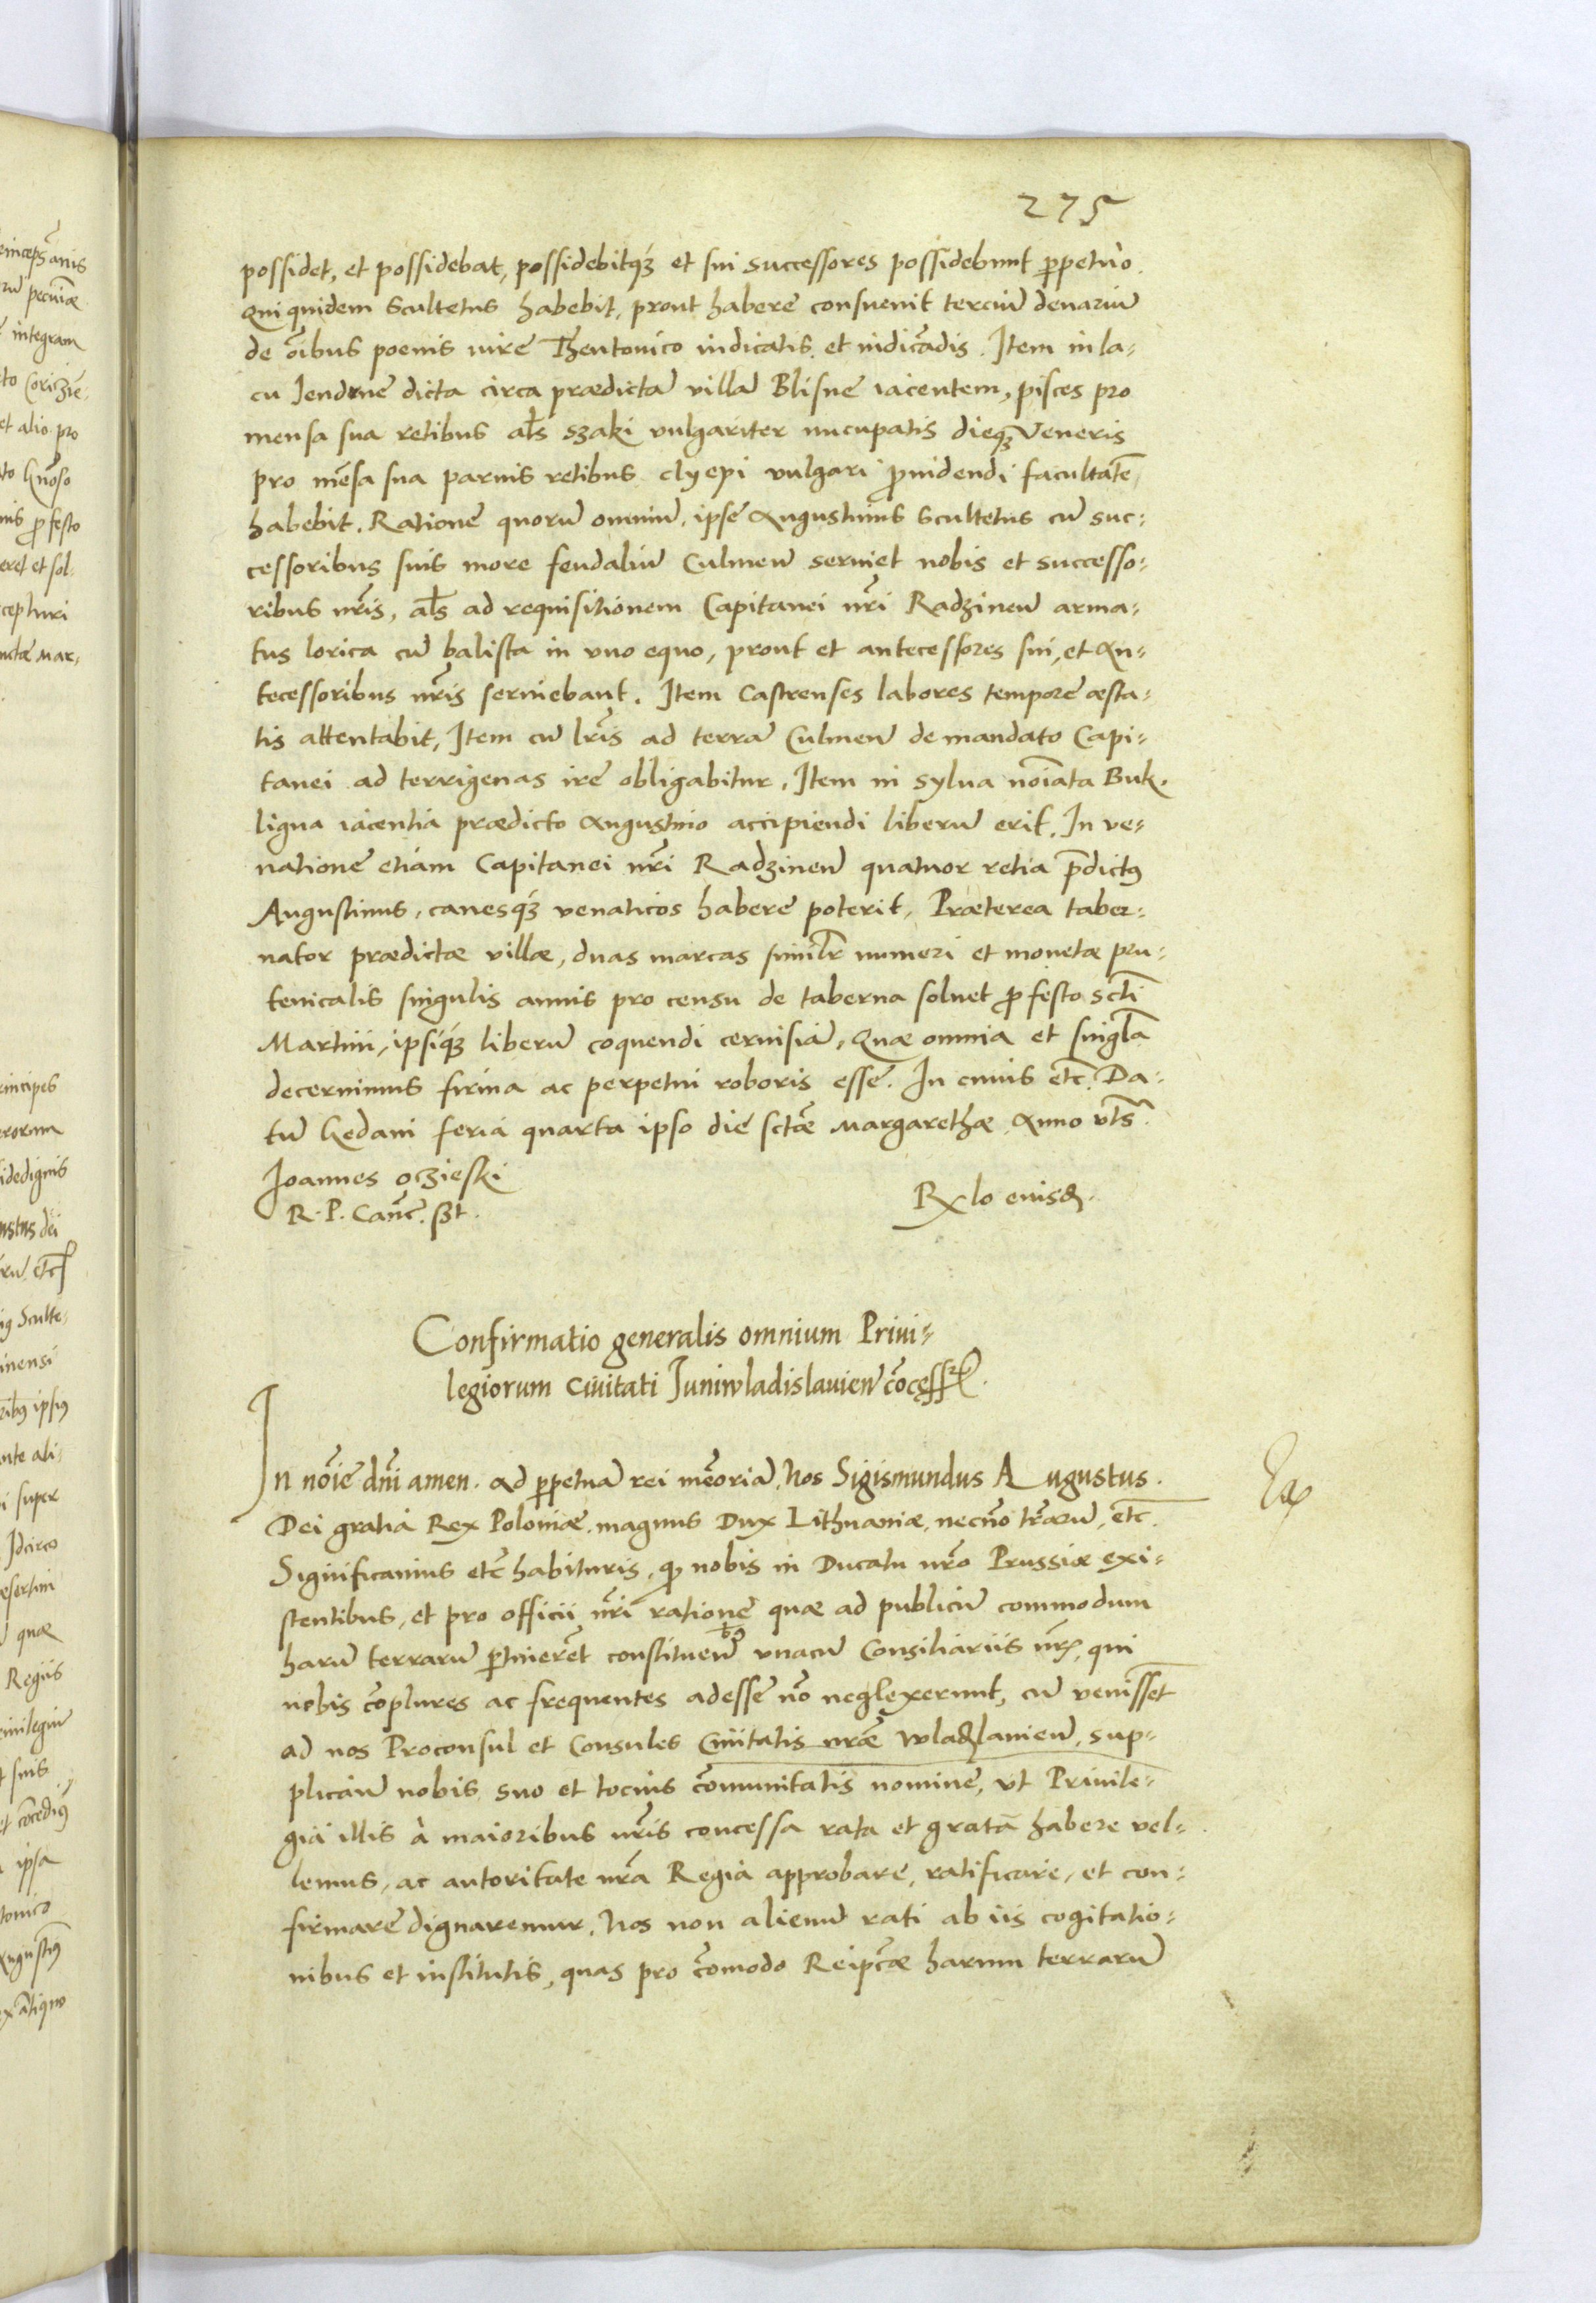 275
possidet, et possidebat, possidebitqꝫ et sui successores possidebunt ꝑpetuo.
Qui quidem Scultetus habebit, prout habere consuevit terciū denariū
de oībus poenis iure Thentonico iudicatis et iudicādis. Item in la-
cu Iendrne dicta circa prædictā villā Blisne iacentem, pisces pro
mensa sua retibus als szaki vulgariter nucupatis dieqꝫ Veneris
pro mēsa sua parvis retibus clyepi vulgari ꝓvidendi facultatē
habebit. Ratione quorū omniū, ipse Augustinus Scultetus cū suc-
cessoribus suis more feudaliū Culmeñ serviet nobis et successo-
ribus nr̄is, als ad requisitionem Capitanei nr̄i Radzineñ arma-
tus lorica cū balista in uno equo, prout et antecessores sui, et An-
tecessoribus nr̄is serviebant. Item Castrenses labores tempore æsta-
tis attentabit, Item cū lr̄is ad terrā Culmeñ de mandato Capi-
tanei ad terrigenas ire obligabitur, Item in sylva noīata Buk.
ligna iacentia prædicto Augustino accipiendi liberū erit. In ve-
natione etiam Capitanei nr̄i Radzineñ quatuor retia p̄dictꝰ
Augustinus, canesqꝫ venaticos habere poterit, Præterea taber-
nator prædictæ villæ, duas marcas similr̄ numeri et monetæ pru-
tenicalis singulis annis pro censu de taberna solvet ꝓ festo scti
Martini, ipsiqꝫ liberū coquendi cervisiā, Quæ omnia et singla
decernimus firma ac perpetui roboris esse. In cuius etc. Da-
tū Gedani feria quarta ipso die sctæ Margarethæ Anno vts.
Joannes Oczieski
R. P. Canc. sst.
Rx̄lo eiusd.
Confirmatio generalis omnium Privi-
legiorum Civitati Iuniwladislavień cōcessꝝ.
In noīe dn̄i amen. Ad ꝑpetuā rei mēoriā. Nos Sigismundus Augustus.
Dei gratia Rex Poloniæ, magnus Dux Lithuaniæ, necnō tr̄arū, etc.
Significamus etc habituris, qꝫ nobis in Ducatu nr̄o Prussiæ exi-
stentibus, et pro officii nr̄i ratione quæ ad publicū commodum
harū terrarū ꝑtinerēt constitueñ unacū Consiliariis nr̄is, qui
nobis cōplures ac frequentes adesse nō neglexerunt, cū venisset
ad nos Proconsul et Consules Civitatis nr̄æ Wladslavieñ, sup-
plicañ nobis suo et tocius cōmunitatis nomine, ut Privile-
gia illis à maioribus nr̄is concessa rata et gratā habere vel-
lemus, ac autoritate nr̄a Regia approbare, ratificare, et con-
firmare dignaremur. Nos non alienū rati ab iis cogitatio-
nibus et institutis, quas pro cōmodo Reipcæ harum terrarū